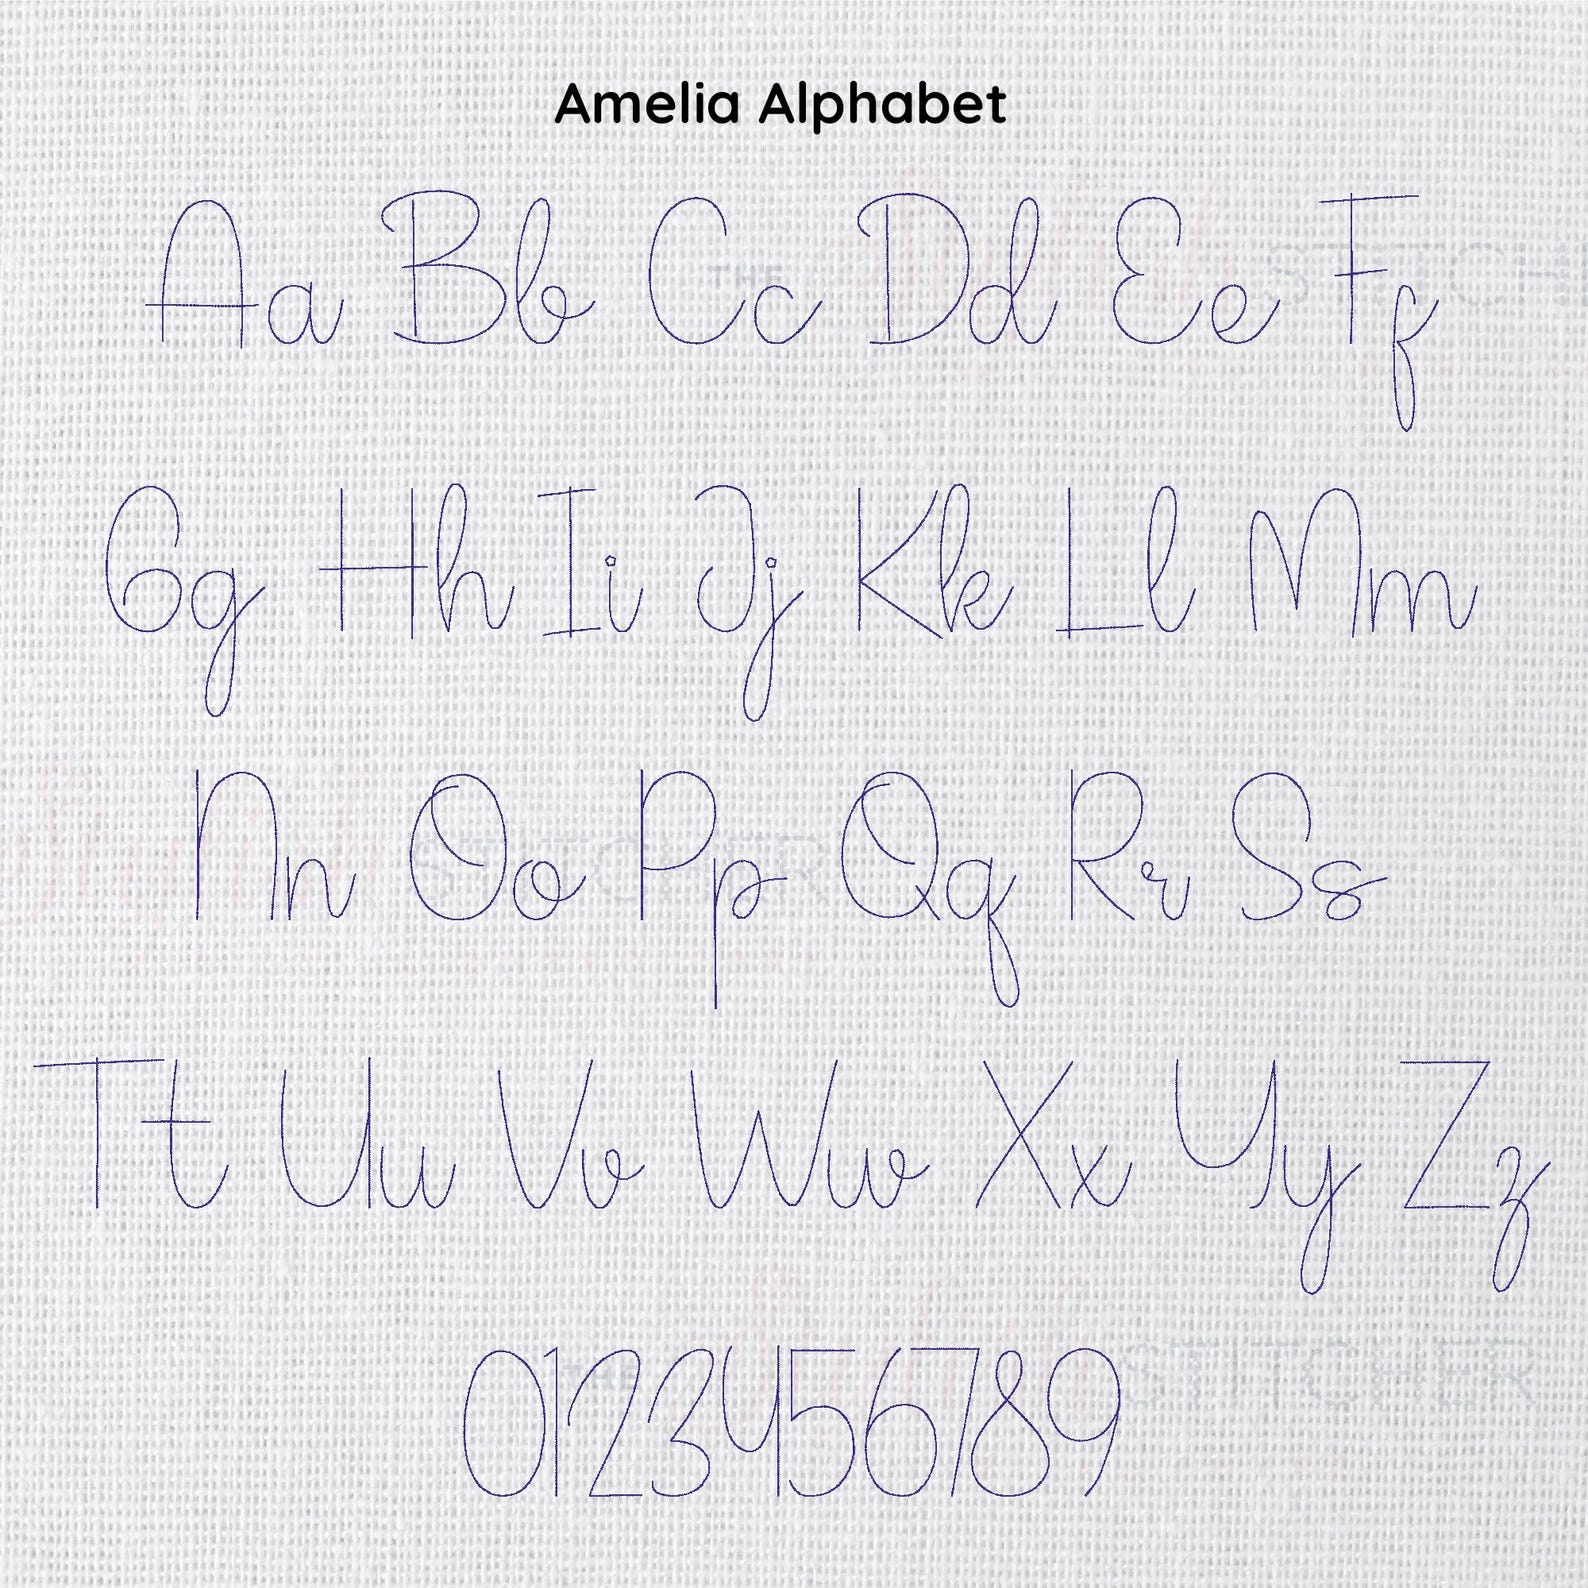 Amelia Alphabet
Aa Bb Cc Dd Ee Ff
Gg Hh Ii Jj Kk Ll Mm
Nn Oo Pp Qq Rr Ss
Tt Uu Vv Ww Xx Yy Zz
0123456789